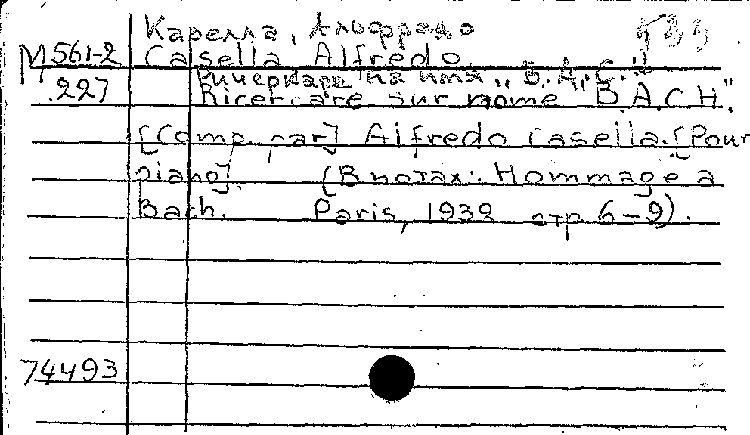 Карелла, Альфредо 533
М 561-2 Casella Alfredo.
227 Ричеркаре на имя „B.A.C."
Ricercare sur nome "B.A.C.H."
[Comp. par] Alfredo Casella. [Pour
piano]. (В нотах: Hommage a
Bach. Paris, 1932 стр 6-9).
74493